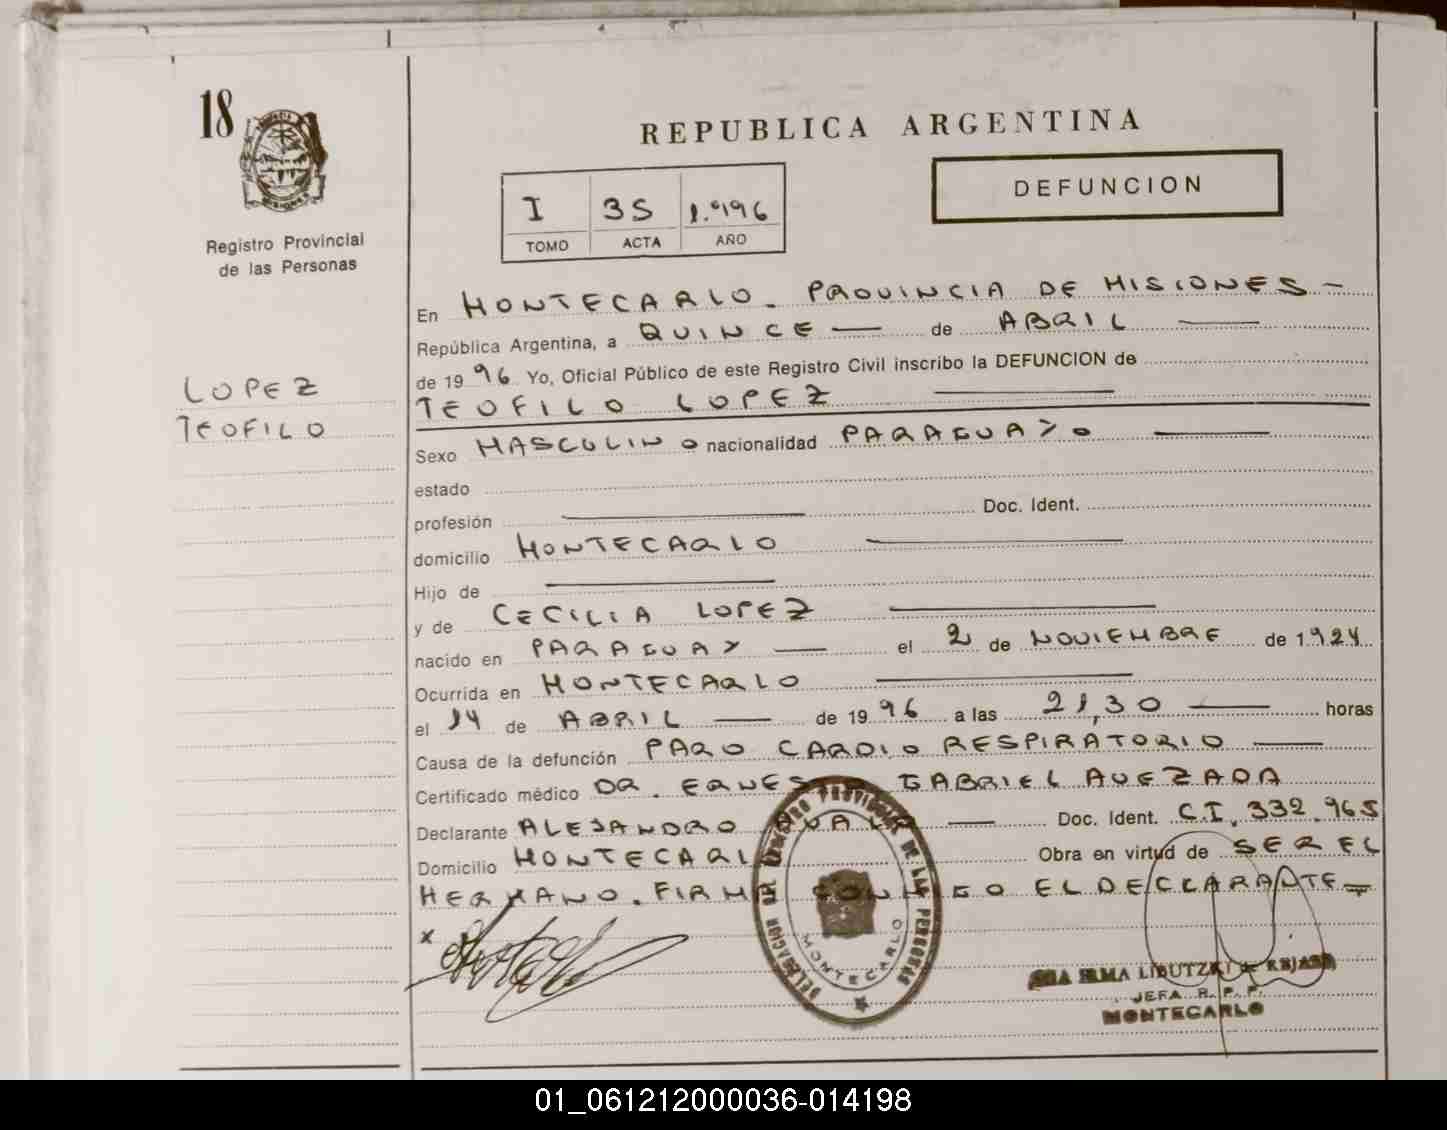 18
REPUBLICA ARGENTINA
DEFUNCION
I 35 1.996
TOMO ACTA AÑO
Registro Provincial
de las Personas
LOPEZ
TEOFILO
En MONTECARLO. PROVINCIA DE MISIONES -
República Argentina, a QUINCE — de ABRIL —
de 19 96 Yo, Oficial Público de este Registro Civil inscribo la DEFUNCION de
TEOFILO LOPEZ —
Sexo MASCULINO nacionalidad PARAGUAYO —
estado
profesión — Doc. Ident.
domicilio MONTECARLO —
Hijo de —
y de CECILIA LOPEZ —
nacido en PARAGUAY — el 2 de NOVIEMBRE de 1924
Ocurrida en MONTECARLO —
el 14 de ABRIL — de 19 96 a las 21,30 — horas
Causa de la defunción PARO CARDIO RESPIRATORIO —
Certificado médico DR. GABRIEL AVEZADA
Declarante ALEJANDRO — Doc. Ident. C.I. 332.965
Domicilio MONTECARL Obra en virtud de SER EL
HERMANO. FIRMA CONMIGO EL DECLARANTE —
x
DELEGACION DEL REGISTRO PROVINCIAL DE LAS PERSONAS
MONTECARLO
IRMA
JEFA R. P. P.
MONTECARLO
01_061212000036-014198